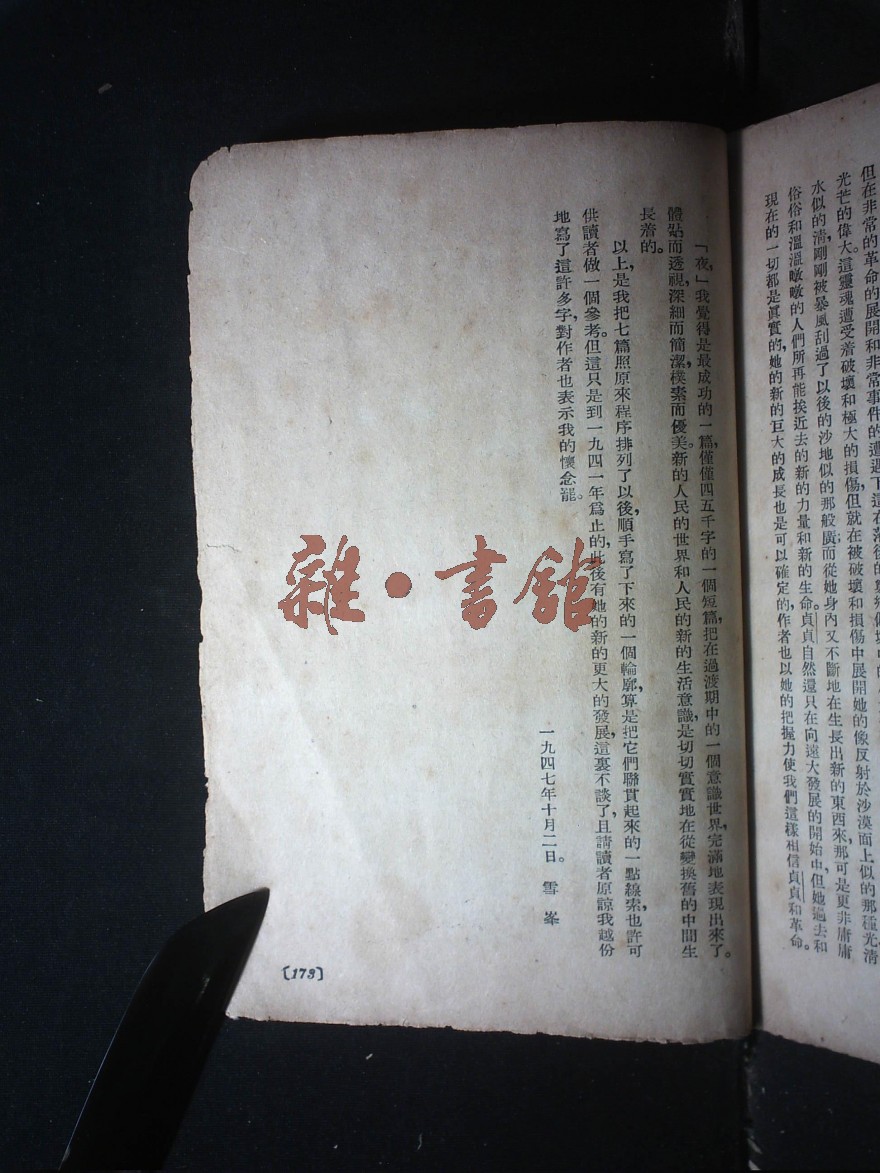 但在非常的革命的展開和非常事件的遭遇下這在落後的
光芒的偉大。這靈魂遭受着破壞和極大的損傷，但就在被破壞和損傷中展開她的像反射於沙漠面上似的那種光，清
水似的清，剛剛被暴風刮過了以後的沙地似的那般廣；而從她身內又不斷地在生長出新的東西來，那可是更非庸庸
俗俗和溫溫暾暾的人們所再能挨近去的新的力量和新的生命。貞貞自然還只在向遠大發展的開始中，但她過去和
現在的一切都是眞實的，她的新的巨大的成長也是可以確定的，作者也以她的把握力使我們這樣相信貞貞和革命。
「夜，」我覺得是最成功的一篇，僅僅四五千字的一個短篇，把在過渡期中的一個意識世界，完滿地表現出來了。
體貼而透視，深細而簡潔，樸素而優美。新的人民的世界和人民的新的生活意識，是切切實實地在從變換舊的中間生
長着的。
以上，是我把七篇照原來程序排列了以後，順手寫了下來的一個輪廓，算是把它們聯貫起來的一點線索，也許可
供讀者做一個參考。但這只是到一九四一年爲止的，此後有她的新的更大的發展，這裏不談了，且請讀者原諒我越份
地寫了這許多字，對作者也表示我的懷念罷。
一九四七年十月二日。 雪峯
〔173〕
雜·書館